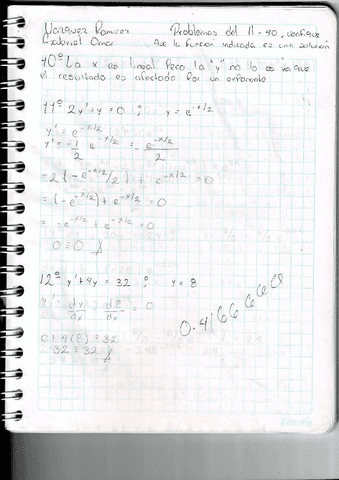 Marquez Ramirez Problemas del 11-40, verifique
Gabriel Omar Que la función indicada es una solución
10º La x es lineal pero la "y" no lo es ya que
el resultado es afectado por un exponente
11º 2y'+y=0 ; y = e^-x/2
y' = e^-x/2
y' = -1/2 e^-x/2 = - e^-x/2 / 2
=2(-e^-x/2 / 2) + e^-x/2 = 0
=(-e^-x/2) + e^-x/2 = 0
= -e^-x/2 + e^-x/2 = 0
0=0
12º y'+4y = 32 ; y = 8
y' = dy/dx = d8/dx = 0
0+4(8) = 32
32 = 32
0.4166666